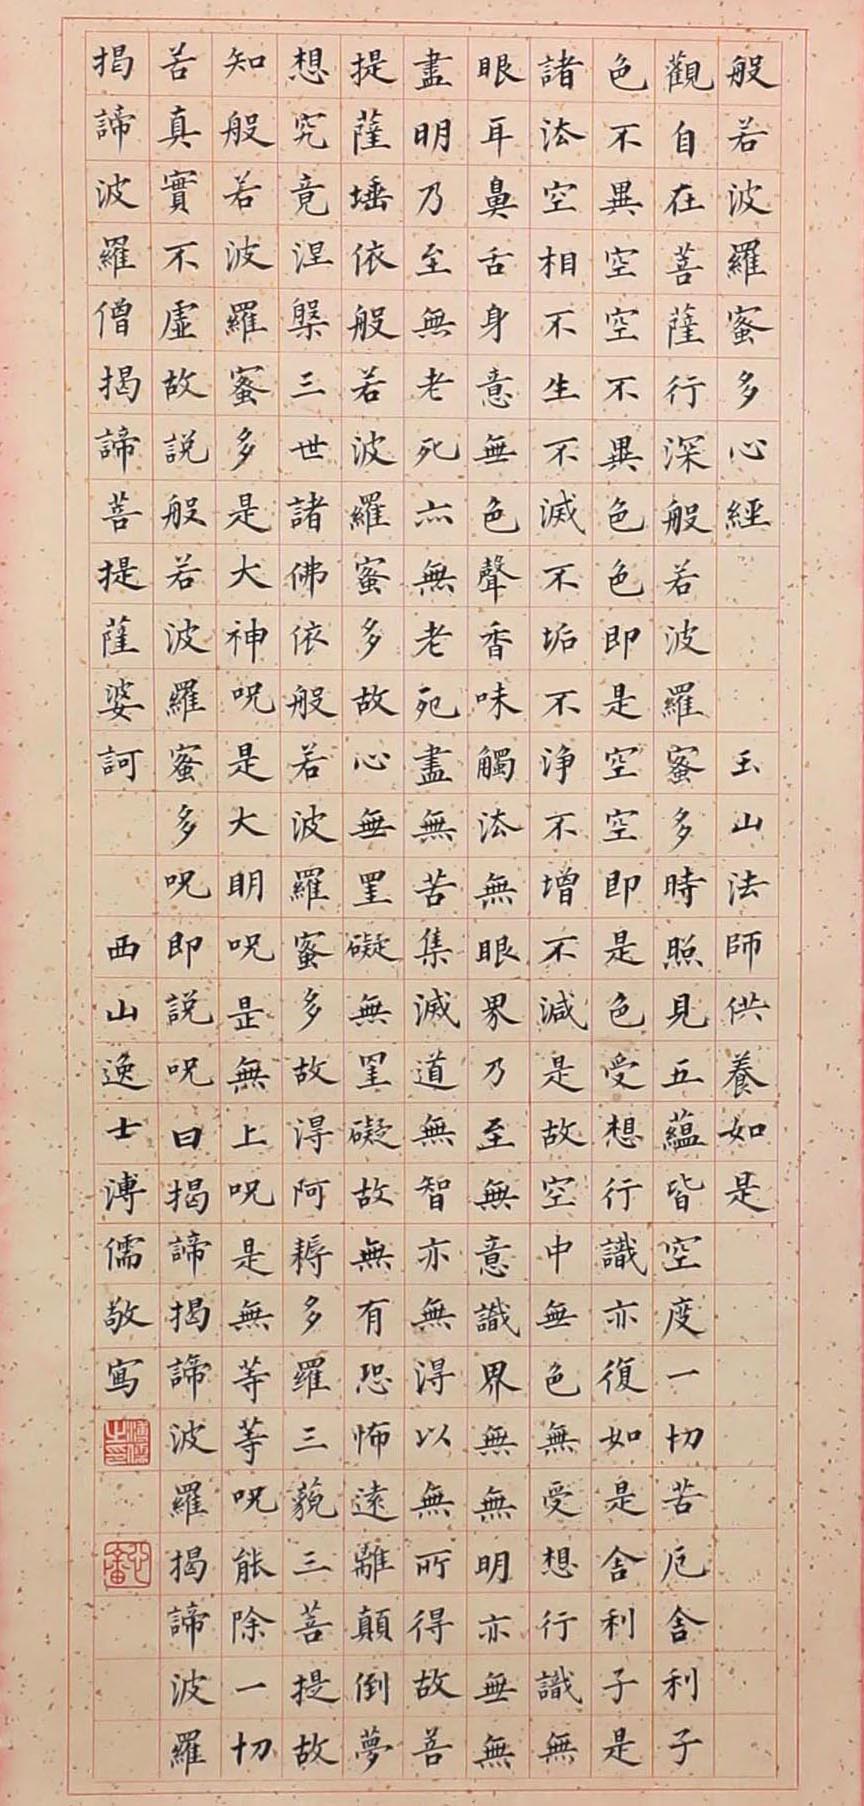 般若波羅蜜多心經 玉山法師供養如是
觀自在菩薩行深般若波羅蜜多時照見五蘊皆空度一切苦厄舍利子
色不異空空不異色色即是空空即是色受想行識亦復如是舍利子是
諸法空相不生不滅不垢不淨不增不減是故空中無色無受想行識無
眼耳鼻舌身意無色聲香味觸法無眼界乃至無意識界無無明亦無無
盡明乃至無老死亦無老死盡無苦集滅道無智亦無得以無所得故菩
提薩埵依般若波羅蜜多故心無罣礙無罣礙故無有恐怖遠離顛倒夢
想究竟涅槃三世諸佛依般若波羅蜜多故得阿耨多羅三藐三菩提故
知般若波羅蜜多是大神呪是大明呪是無上呪是無等等呪能除一切
苦真實不虛故說般若波羅蜜多呪即說呪曰揭諦揭諦波羅揭諦波羅
揭諦波羅僧揭諦菩提薩婆訶 西山逸士溥儒敬寫
溥儒之印
心畬